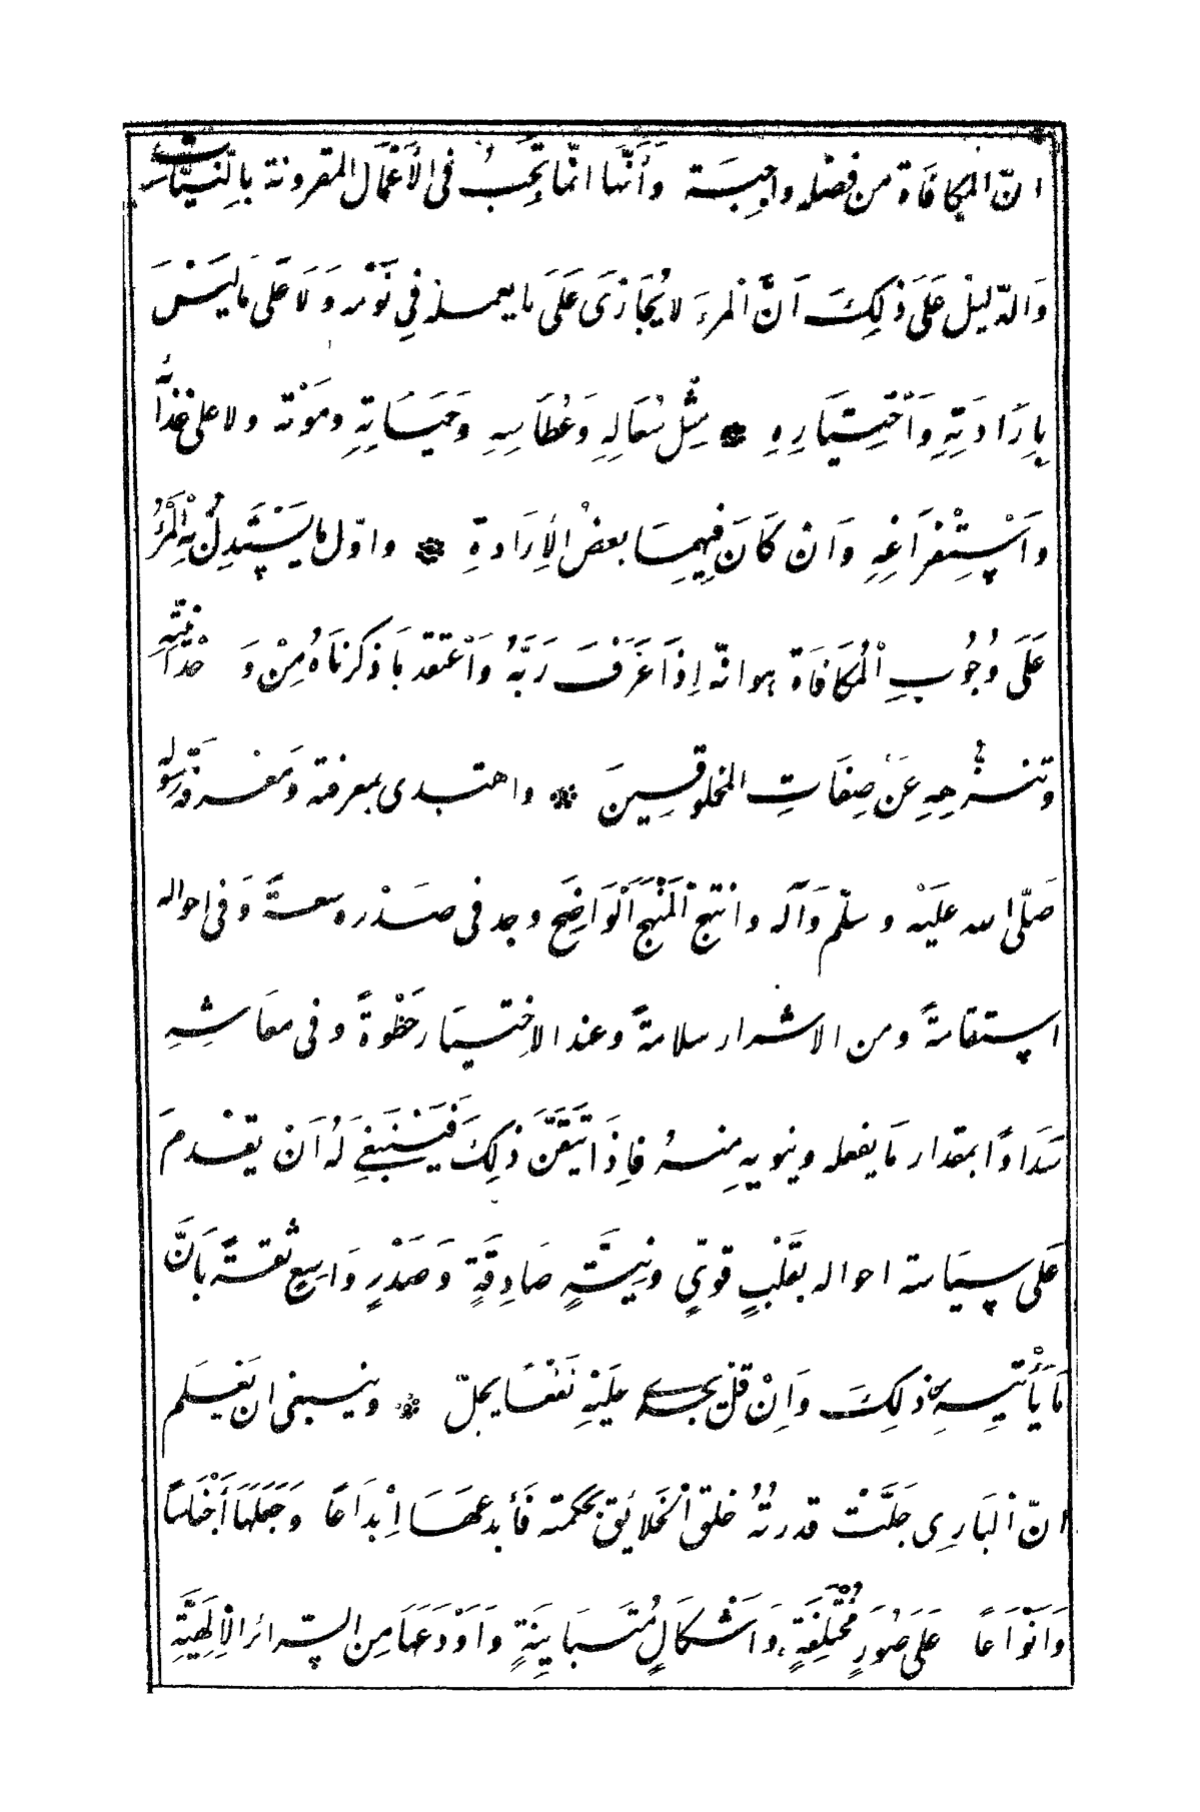 انّ المكافاة من فضله واجِبَة وَأَنّها انّما تَجِبُ فى الأَعْمَال المقرونة بالنّيّات
وَالدّليلْ عَلَى ذٰلِكَ اَنَّ الْمرءَ لا يُجَازَى عَلَى ما يعمله فِي نَوْمه وَلَا عَلَى مَا لَيْسَ
بِاِرَادَتِهِ وَاَخْتِيَارِهِ ❋ مِثْل سُعَالِهِ وَعُطَاسِهِ وَحَيَاتِهِ ومَوْته ولا على غذائه
واَسْتِفْرَاغِهِ وَانْ كَانَ فِيهِمَا بعضُ الْأِرَادةِ ❋ واوّل ما يَسْتَدِلُّ بِهِ الْمَرْءُ
عَلَى وُجُوبِ الْمُكَافَاة هو انّه اِذَا عَرَفَ رَبَّهُ وَاَعْتقد مَا ذكرنَاهُ مِنْ وَحْدَانِيَّتِهِ
وتنزُّهِهِ عَنْ صِفَاتِ المخلوقِينَ ❋ واهتدى بمعرفته وَمَعْرفة رَسُوله
صَلّى الله عليْه وسلّم وَآله وانتهج الْمَنْهَج الْوَاضِحَ وجد فى صَدْره سعةً وَفى احواله
استقامةً ومن الاشرار سلامةً وعند الاخْتيَار حَظْوةً وفى معَاشِهِ
سَدَادًا بمقدار مَا يفعله وينويه مِنهُ فاِذَا تَيَقَّنَ ذٰلِكَ فَيَنْبَغِي لَهُ اَنْ يقْدمَ
عَلَى سيَاسة احواله بقَلْبٍ قوىٍّ ونِيَّةٍ صَادِقَةٍ وَصَدْرٍ وَاسِعٍ ثقةً بَانَّ
مَا يَأْتيهِ فى ذٰلِكَ وَاِنْ قلّ يجدى عليْهِ نَفْعًا يجلّ ❋ وينبغى ان يَعْلَم
انّ الْبَارِى جَلَّتْ قدرتُهُ خلق الْخَلَائِق بحكمته فَأَبدعهَا اِبْدَاعًا وَجَعَلَهَا أَجْنَاسًا
وَاَنْوَاعًا عَلَى صُوَرٍ مُخْتَلِفَةٍ وَاَشْكَالٍ مُتَبَايِنَةٍ وَاَوْدَعَهَا مِن السّرائر الْإِلٰهِيَّةِ